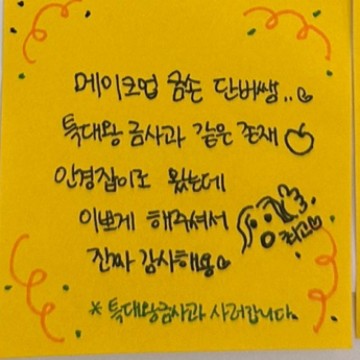 메이크업 금손 단버쌤..
특대왕 금사과 같은 존재
안경잡이로 왔는데
이쁘게 해주셔서
진짜 감사해용
최고
*특대왕금사과 사러갑니다.